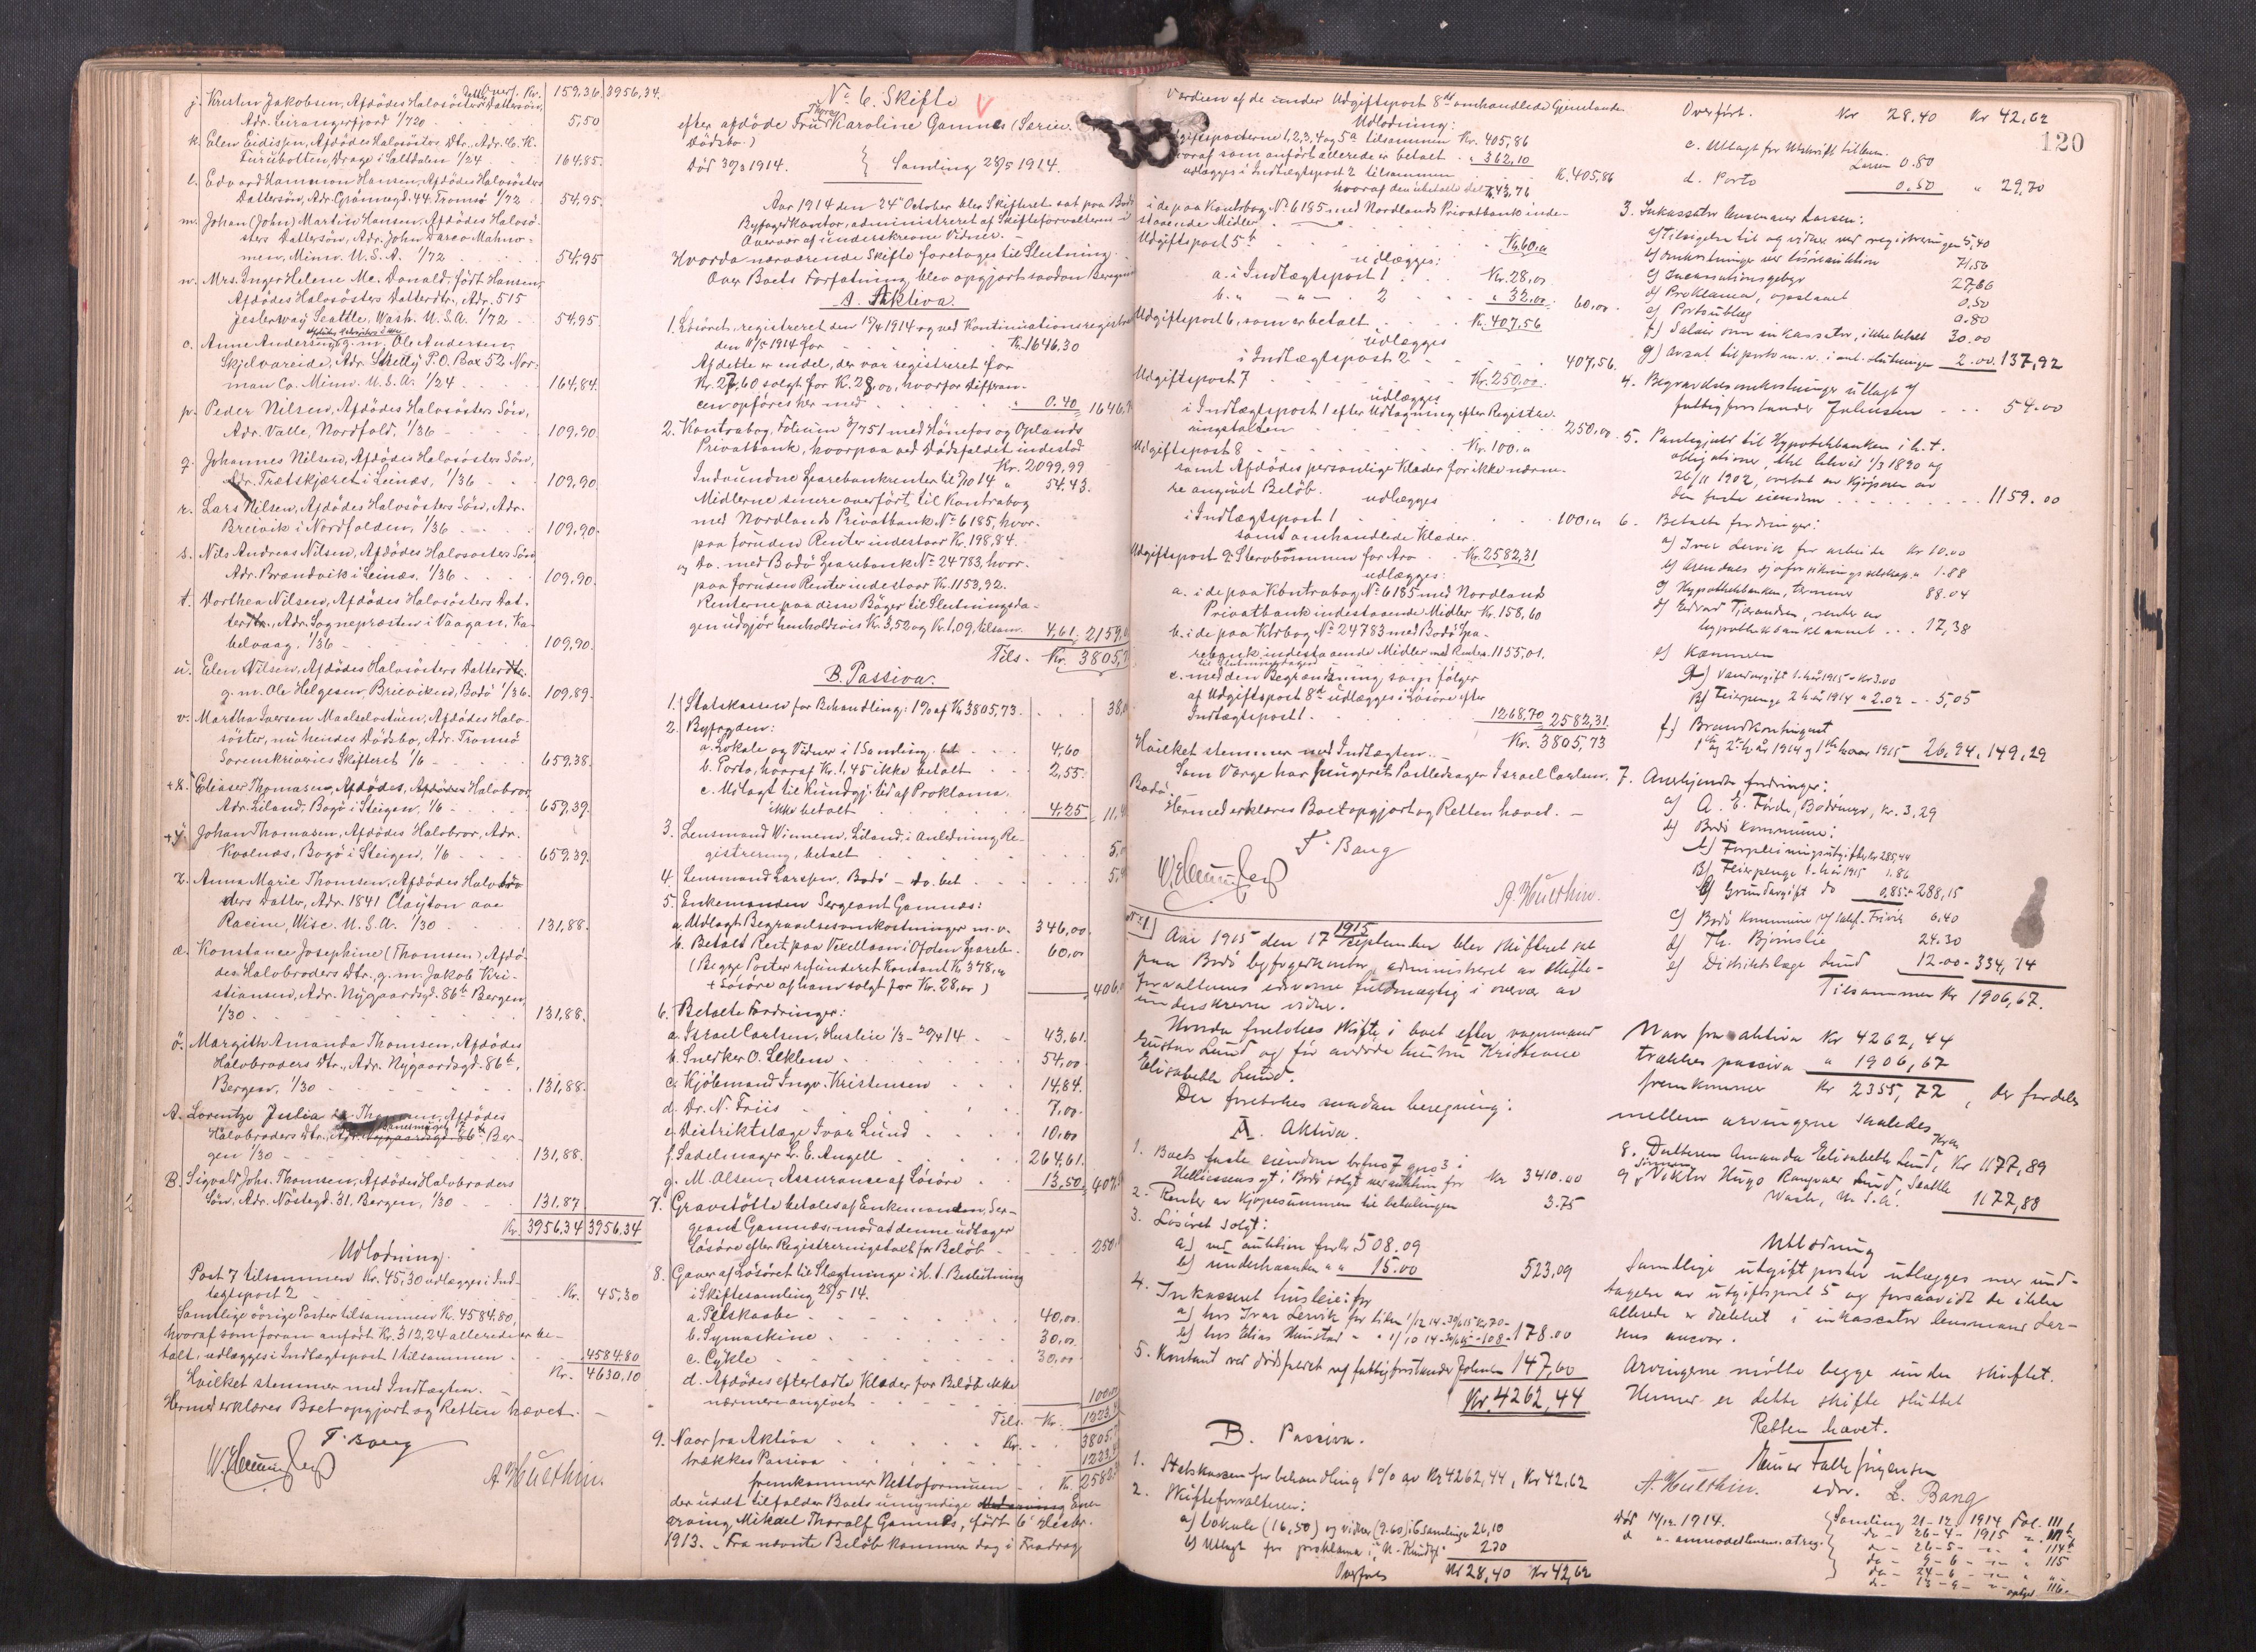 j. Kristen Jakobsen, Afdödes Halvsösters Dattersön,
Adr. Leirangerfjord 1/720 5,50
Kr. 159,36 3956,34.
k. Elen Eidissen, Afdödes Halvsösters Dtr., Adr. C. K.
Furubotten, Drage i Saltdalen 1/24 164,85.
l. Edvard Hammon Hansen, Afdödes Halvsösters
Dattersön, Adr. Grönnegd. 44. Tromsö 1/72 54,95.
m. Johan (John) Martin Hansen, Afdödes Halvsö-
sters Dattersön, Adr. John Darco Mahno-
men, Minn. U.S.A. 1/72 54,95
n. Mrs. Inger Helene Mc. Donald, født Hansen,
Afdödes Halvsösters Datterdtr., Adr. 515
Jesterway Seattle, Wash. U.S.A. 1/72 54,95
o. Anne Andersen, g.m. Ole Andersen
Skjelvareide, Adr. Shelly P.O. Box 52 Nor-
man Co. Minn. U.S.A. 1/24 164,84.
p. Peder Nilsen, Afdödes Halvsösters Sön,
Adr. Valle, Nordfold, 1/36 109,90.
q. Johannes Nilsen, Afdödes Halvsösters Sön,
Adr. Trætskjæret i Leinæs, 1/36 109,90
r. Lars Nilsen, Afdödes Halvsösters Sön, Adr.
Breivik i Nordfolden, 1/36 109,90.
s. Nils Andreas Nilsen, Afdödes Halvsösters Sön
Adr. Brændvik i Leinæs, 1/36 109,90.
t. Dorthea Nilsen, Afdödes Halvsösters Dat-
ter, Adr. Sognepræsten i Vaagan, Ka-
belvaag, 1/36 109,90.
u. Elen Nilsen, Afdödes Halvsösters Datter
g.m. Ole Helgesen, Breiviken, Bodö 1/36 109,89.
v. Martha Iversen Maalselvstuen, Afdödes Halv-
söster, nu hendes Dödsbo, Adr. Tromsö
Sorenskriveries Skifteret 1/6 659,38.
x. Eliaser Thomasen, Afdödes Halvbror,
Adr. Liland, Bogö i Steigen, 1/6 659,39.
y. Johan Thomasen, Afdödes Halvbror, Adr.
Kvalnæs, Bogö i Steigen, 1/6 659,39.
z. Anna Marie Thomsen, Afdödes Halvbro
ders Datter, Adr. 1841 Clayton ave
Racine, Wisc. U.S.A. 1/30 131,88.
æ. Konstance Josephine (Thomsen), Afdö-
des Halvbroders Dtr., g.m. Jakob Kri-
stiansen, Adr. Nygaardsgd. 86b Bergen,
1/30 131,88.
ö. Margith Amanda Thomsen, Afdödes
Halvbroders Dtr., Adr. Nygaardsgd. 86b,
Bergen, 1/30 131,88.
A. Lorentze Julia Thomsen, Afdödes
Halvbroders Dtr., Adr. Nygaardsgd. 86b Ber-
gen 1/30 131,88.
B. Sigvald Johs. Thomsen, Afdödes Halvbroders
Sön, Adr. Nöstegd. 31, Bergen, 1/30 131,87
Kr. 3956,34 3956,34
Udlodning.
Post 7 tilsammen Kr. 45,30 udlægges i Ind-
tægtspost 2 Kr. 45,30
Samtlige övrige Poster tilsammen Kr. 4584,80,
hvoraf som foran anført Kr. 312,24 allerede er be-
talt, udlægges i Indtægtspost 1 tilsammen 4584,80
Kr. 4630,10
Hvilket stemmer med Indtægten.
Hermed erklæres Boet opgjort og Retten hævet.
F. Bang
A. Hulthin.
No 6. Skifte
efter afdöde Fru Thora Karoline Gamnes (Særin.
Dödsbo.)
Död 30/3 1914. Samling 28/5 1914.
Aar 1914 den 24' October blev Skifteret sat paa Bodö
Byfogedkontor, administreret af Skifteforvalteren i
Overvær af underskrevne Vidner.
Hvorda nærværende Skifte foretoges til Slutning.
Over Boets Forfatning blev opgjort saadan Beregning
A. Aktiva.
1. Lösöret, registreret den 15/4 1914 og ved Kontinuationsregistre
den 11/5 1914 for Kr. 1646,30
Af dette er endel, der var registreret for
Kr. 27,60 solgt for K. 28,00, hvorfor Differan-
cen opføres her med 0.40 1646,
2. Kontrabog, Folium 3/751 med Hönefos og Oplands
Privatbank, hvorpaa ved Dödsfaldet indestod
Kr. 2099,99
Indvundne Sparebankrenter til 14 54.43.
Midlerne senere overført til Kontrabog
med Nordlands Privatbank No 6185, hvor-
paa foruden Renter indestaar K. 198,84.
og Do. med Bodö Sparebank No 24783, hvor-
paa foruden Renter indestaar Kr. 1153,92.
Renterne paa disse Böger til Slutningsda-
gen udgjör henholdsvis Kr. 3,52 og Kr. 1,09, tilsam. 4,61. 2159,
Tils. Kr. 3805,
B. Passiva.
1. Statskassen for Behandling: 1% af Kr. 3805,73. 38,
2. Byfogden:
a. Lokale og Vidner i 1 Samling. bet. 4,60
b. Porto, hvoraf Kr. 1,45 ikke betalt 2,55.
c. Utlagt til Kundgj. tid af Proklama,
ikke betalt 4,25 11,4
3. Lensmand Winnem, Liland, i Anledning Re-
gistrering, betalt 5,
4. Lensmand Larssen, Bodö – do. bet. 5,
5. Enkemanden Sergeant Gamnæs:
a. Udlagt Begravelsesomkostninger m.v. 346,00.
b. Betalt Rest paa Vexellaan i Ofoten Spareb. 60,00
(Begge Poster refunderet Kontant Kr. 378,00
+ Lösöre af ham solgt for Kr. 28,00) 406,
6. Betalte Fordringer:
a. Israel Carlsen, Husleie 43,61.
b. Snedker O. Leklem 54,00.
c. Kjöbmand Ingv. Kristensen 14,84.
d. Dr. N. Friis 7,00.
e. Distriktslæge Ivar Lund 10,00
f. Sadelmager L. E. Angell 264,61.
g. M. Olsen, Assurance af Lösöre 13,50. 407,
7. Gravstötte betales af Enkemanden, Ser-
geant Gamnæs, mod at denne udtager
Lösöre efter Registreringstaxt for Belöb 250,
8. Gaver af Lösöret til Slægtninge i H.t. Beslutning
i Skiftesamling 28/5 14.
a. Pelskaabe 40,00.
b. Symaskine 30,00
c. Cykle 30,00
d. Afdödes efterladte Klæder for Belöb ikke
nærmere angivet 100,00
Tils. Kr. 1223,
9. Naar fra Aktiva Kr. 3805,
trækkes Passiva 1223,
fremkommer Nettoformuen Kr. 2582,
der udelt tilfalder Boets umyndige Ene-
arving Mikael Thoralf Gamnes, født 6'
1913. – Fra nævnte Belöb kommer dog i Fradrag
Værdien af de under Udgiftspost 8d omhandlede Gjenstande.
Udlodning:
Udgiftsposterne 1, 2, 3, 4 og 5a tilsammen Kr. 405,86
hvoraf som anført allerede er betalt 362,10
udlægges i Indtægtspost 2 tilsammen K. 405,86
hvoraf den ubetalte del K. 43,76
i de paa Kontrabog No 6185 med Nordlands Privatbank inde-
staaende Midler.
Udgiftspost 5b Kr. 60,00
udlægges:
a. i Indtægtspost 1 Kr. 28,00
b. " – " – 2 " 32,00 60,00.
Udgiftspost 6, som er betalt Kr. 407,56
udlægges
i Indtægtspost 2 407,56.
Udgiftspost 7 Kr. 250,00.
udlægges
i Indtægtspost 1 efter Udtagning efter Registre-
ringstaxten 250,00.
Udgiftspost 8 Kr. 100,00
samt Afdödes personlige Klæder for ikke nærme-
re angivet Belöb.
udlægges
i Indtægtspost 1 100,00
samt omhandlede Klæder.
Udgiftspost 9. Stervbosummen for Arv Kr. 2582,31
udlægges:
a. i de paa Kontrabog No 6185 med Nordlands
Privatbank indestaaende Midler Kr. 158,60
b. i de paa Ktrbog No 24783 med Bodö Spa-
rebank indestaaende Midler med Renter 1155,01.
til Slutningsdagen
c. med den Begrændsning, som følger
af Udgiftspost 8d udlægges i Lösöre efter
Indtægtspost 1. 1268,70 2582,31.
Kr. 3805,73
Hvilket stemmer med Indtægten.
Som Værge har fungeret Postledsager Israel Carlsen,
Bodö.
Hermed erklæres Boet opgjort og Retten hævet. –
F. Bang
A. Hulthin.
No 1.
1915
Aar 1915 den 17 september blev skifteret sat
paa Bodö byfogedkontor, administreret av skifte-
forvalterens edsvorne fuldmægtig i overvær av
underskrevne vidner.
Hvorda foretokes skifte i boet efter vognmand
Gustav Lund og før avdøde hustru Kristiane
Elisabeth Lund.
Der foretokes saadan beregning:
A. Aktiva.
1. Boets faste eiendom brno 7 gno 3 i
Hellicssens gt i Bodö solgt ved auktion for Kr 3410.00
2. Renter av kjøpesummen til betalingen 3.75
3. Lösöret solgt:
a) ved auktion for kr 508.09
b) underhaanden " " 15.00 523,09
4. Inkasseret husleie:
a) hos Ivar Lervik for tiden 1/12 14 - 30/6 15 Kr 70 -
b) hos Elias Hunstad - " 1/10 14 - 30/6 15 - 108 - 178.00
5. Kontant ved dødsfaldet ved fattigforstander Johnsen 147,60
Kr. 4262,44
B. Passiva.
1. Statskassen for behandling 1% av Kr 4262,44, Kr 42,62
2. Skifteforvalteren:
a) lokale (16,50) og vidner (9.60) i 6 samlinger 26,10
b) Utlagt for proklama i N. Kundgj. 2.30
Overføres Kr 28,40 Kr 42,62
120
Overført. Kr 28.40 Kr 42,62
c. Utlagt for Utskrift til lensm.
Larsen 0.80
d. Porto 0.50 " 29,70
3. Inkassator lensmand Larsen:
a) tilsigelse til og vidner ved registreringen 5,40
b) omkostninger ved lösöreauktion 71,56
c) Incassationsgebyr 27,66
d) Proklama, opslaaet 0.50
e) Portoutlæg 0.80
f) Salær som inkassator, ikke betalt 30.00
g) Avsat til porto m.v. i anl. slutningen 2.00. 137,92
4. Begravelsesomkostninger utlagt af
fattigforstander Johnsen 54.00
5. Pantegjæld til Hypotekbanken i h.t.
obligationer, tinl. 1/3 1890 og
26/11 1902, overtat av kjøperen av
den faste eiendom 1159.00
6. Betalte fordringer:
a) Ivar Lervik for arbeide Kr 10.00
b) Arendals sjøforsikringsselskap " 1.88
c) Hypothekbanken, terminer 88.04
d) Edvard Tjærandsen, renter av
hypothekbanklaanet 17,38
e) Kæmneren
A) Vandavgift 1. h.aar 1915 - Kr 3.00
B) Feierpenge 2 h.år 1914 " 2.02 - 5,05
f) Brandkontingent
1ste og 2det h.år 1914 og 1ste h.aar 1915 26,94. 149,29
7. Anerkjendte fordringer:
a) A. E. Førde, Bodö, Kr. 3,29
b) Bodö kommune:
A) Forpleiningsutgifter kr 285,44
B) Feierpenge 1. h.år 1915 1.86
C) Grundavgift do 0,85 - 288,15
c) Bodö Kommune 6.40
d) Th. Bjørnslie 24.30
e) Distriktslæge Lund 12.00 - 334,14
Tilsammen Kr 1906,67.
Naar fra aktiva Kr 4262,44
trækkes passiva " 1906,67
fremkommer Kr 2355,72, der fordeles
mellem arvingene saaledes
8. Datteren Amanda Elisabeth Lund, Kr 1177,89
9. Sønnen Viktor Hugo Ragnvar Lund, Seattle
Wash, U.S.A. 1177,88
Utlodning
Samtlige utgiftsposter utlægges med und-
tagelse av utgiftspost 5 og forsaavidt de ikke
allerede er dækket i inkassator lensmand Lar-
sens ansvar.
Arvingene møtte begge under skiftet.
Hermed er dette skifte sluttet
Retten hævet.
Einar Falk Jørgensen
edsv.
A. Hulthin. L. Bang
død 14/12 1914.
Samling 21-12 1914 Fol. 111
do - 26-4- 1915
do - 26-5- 114
do - 9-6- 115
do - 24-6-
d - 13-9- 116